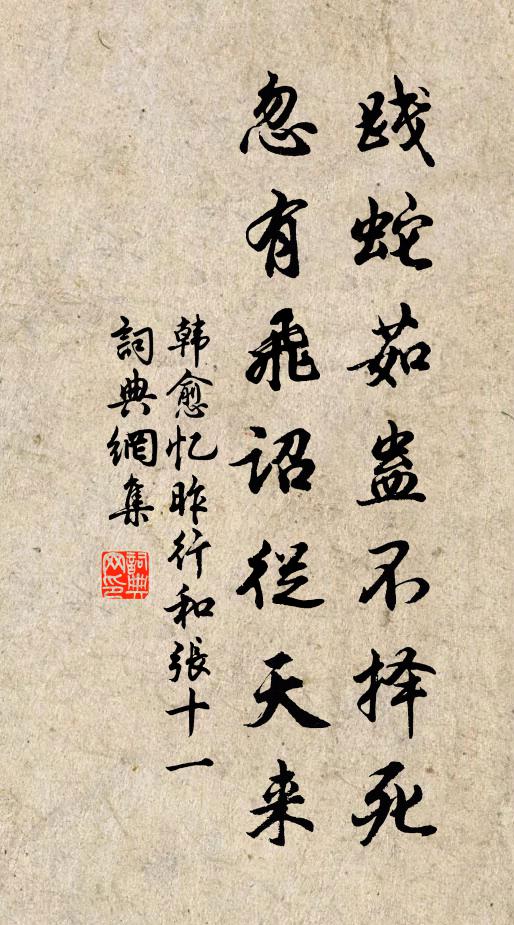 践蛇茹蛊不择死
忽有飛诏從天来
韩愈忆昨行和張十一
詞典網集
詞典网印